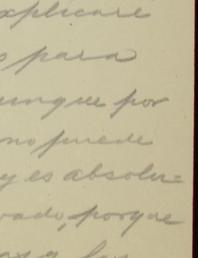 explicaré
para
unque por
no puede
y es absolu=
vado, porque